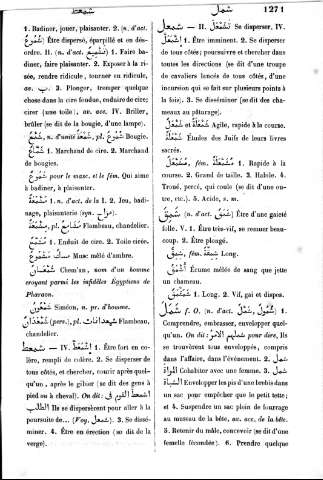 شمعط
شمل
1271
1. Badiner, jouer, plaisanter. 2. (n. d'act.
شُمُوعٌ) Être dispersé, éparpillé et en dés-
ordre. II. (n. d'act. تَشْمِيعٌ) 1. Faire ba-
diner, faire plaisanter. 2. Exposer à la ri-
sée, rendre ridicule, tourner en ridicule,
av. ب. 3. Plonger, tremper quelque
chose dans la cire fondue, enduire de cire;
cirer (une toile); av. acc. IV. Briller,
brûler (se dit de la bougie, d'une lampe).
شَمْعٌ, n. d'unité شَمْعَةٌ, pl. شُمُوعٌ Bougie.
شَمَّاعٌ 1. Marchand de cire. 2. Marchand
de bougies.
شَمُوعٌ pour le masc. et le fém. Qui aime
à badiner, à plaisanter.
1. n. d'act. de la I. 2. Jeu, badi-
nage, plaisanterie (syn. مزاح).
Flambeau, chandelier.
مُشَمَّعٌ 1. Enduit de cire. 2. Toile cirée.
مسك Musc mêlé d'ambre.
شَمْعَانُ Chem'an, nom d'un homme
croyant parmi les infidèles Égyptiens de
Pharaon.
شَمْعُونُ Siméon, n. pr. d'homme.
شَمْعَدَانٌ (pers.), pl. شمعدانات Flambeau,
chandelier.
شمعط — IV. 1. Être fort en co-
lère, rempli de colère. 2. Se disperser de
tous côtés, et chercher, courir après quel-
qu'un, après le gibier (se dit des gens à
pied ou à cheval). On dit: اشمعط القوم فى
الطلب Ils se dispersèrent pour aller à la
poursuite de... (Voy. شمعل). 3. Se dissé-
miner. 4. Être en érection (se dit de la
verge).
شمعل — II. تَشَمْعَلَ Se disperser. IV.
اشْمَعَلَّ 1. Être imminent. 2. Se disperser
de tous côtés; poursuivre et chercher dans
toutes les directions (se dit d'une troupe
de cavaliers lancés de tous côtés, d'une
incursion qui se fait sur plusieurs points à
la fois). 3. Se disséminer (se dit des cha-
meaux au pâturage).
Agile, rapide à la course.
شَمْعَلَةٌ Études des Juifs de leurs livres
sacrés.
مُشْمَعِلٌّ, fém. مُشْمَعِلَّةٌ 1. Rapide à la
course. 2. Grand de taille. 3. Habile. 4.
Troué, percé, qui coule (se dit d'une ou-
tre, etc.). 5. Acide, s. m.
شَمِقَ (n. d'act. شَمَقٌ) Être d'une gaieté
folle. V. 1. Être très-vif, se remuer beau-
coup. 2. Être plongé.
fém. Long.
Écume mêlée de sang que jette
un chameau.
1. Long. 2. Vif, gai et dispos.
شَمَلَ f. O. (n. d'act. شَمْلٌ, شُمُولٌ) 1.
Comprendre, embrasser, envelopper quel-
qu'un. On dit: شملهم الامر pour dire, Ils
se trouvèrent tous enveloppés, compris
dans l'affaire, dans l'événement. 2. شمل
المراة Cohabiter avec une femme. 3. شمل
الشاة Envelopper les pis d'une brebis dans
un sac pour empêcher que le petit tette;
et 4. Suspendre un sac plein de fourrage
au museau de la bête, av. acc. de la bête.
5. Retenir du mâle, concevoir (se dit d'une
femelle fécondée). 6. Prendre quelque